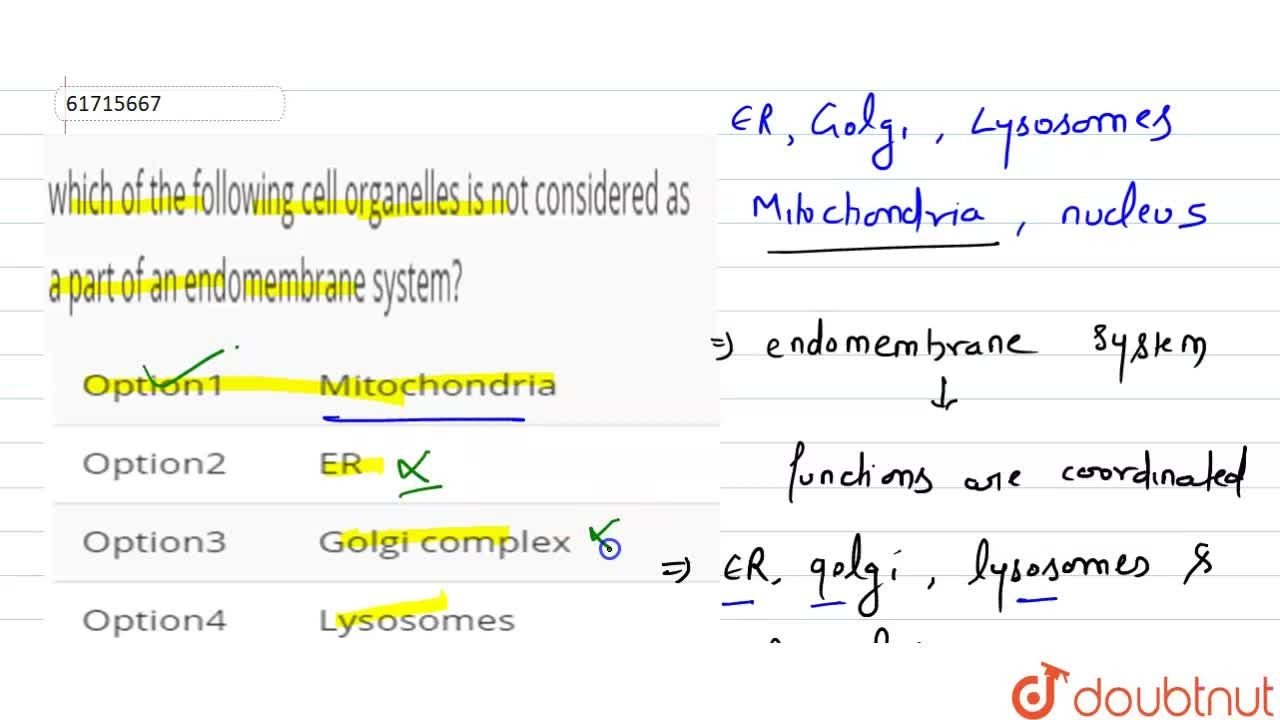 61715667
which of the following cell organelles is not considered as
a part of an endomembrane system?
Option1 Mitochondria
Option2 ER
Option3 Golgi complex
Option4 Lysosomes
ER, Golgi, Lysosomes
Mitochondria, nucleus
⇒ endomembrane system
↓
functions are coordinated
⇒ ER, golgi, lysosomes &
doubtnut